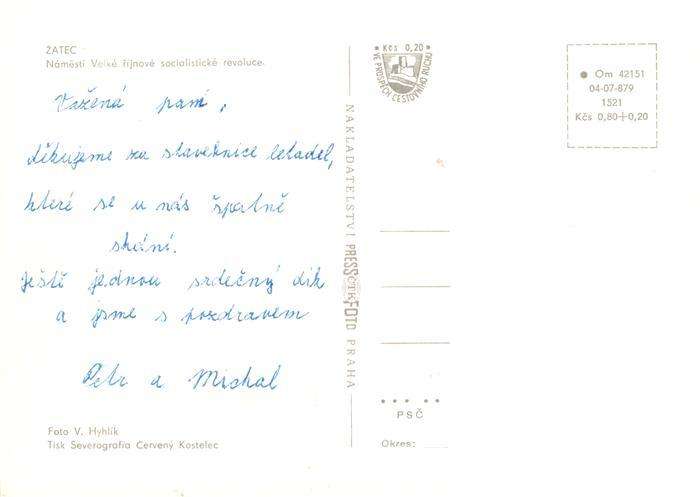 ŽATEC
Náměstí Velké říjnové socialistické revoluce.
Vážená paní,
děkujeme za stavebnice letadel,
které se u nás špatně
shání.
Ještě jednou srdečný dík
a jsme s pozdravem
Petr a Michal
Foto V. Hyhlík
Tisk Severografia Červený Kostelec
NAKLADATELSTVÍ PRESSFOTO PRAHA
ČTK
Kčs 0,20
VE PROSPĚCH CESTOVNÍHO RUCHU
Om 42151
04-07-879
1521
Kčs 0,80+0,20
PSČ
Okres: